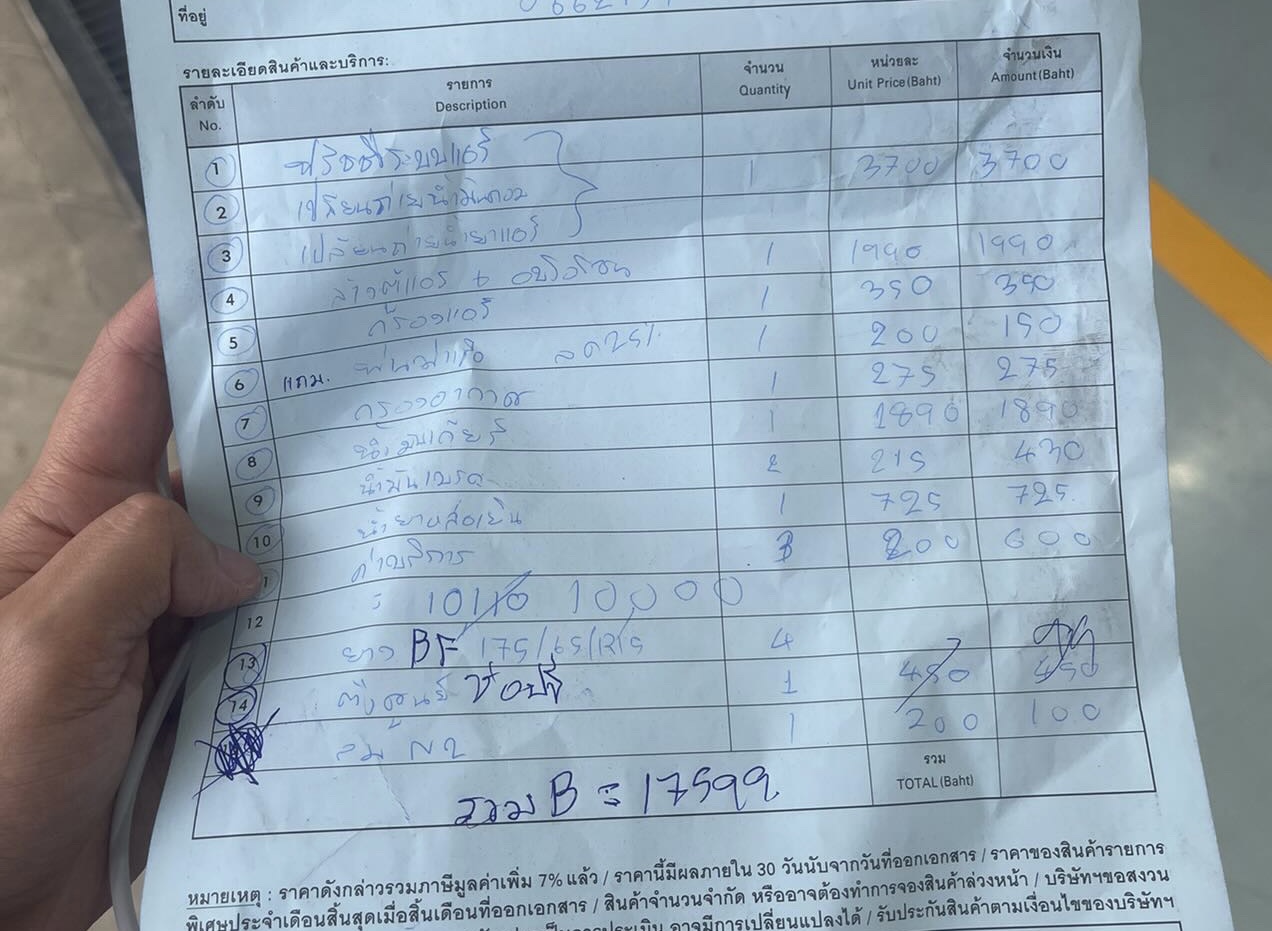 ที่อยู่
รายละเอียดสินค้าและบริการ:
ลำดับ รายการ จำนวน หน่วยละ จำนวนเงิน
No. Description Quantity Unit Price (Baht) Amount (Baht)
1 ระบบแอร์ 1 3700 3700
2 เปลี่ยนถ่ายน้ำมันคอม
3 เปลี่ยนถ่ายน้ำยาแอร์
4 ล้างตู้แอร์ + อบโอโซน 1 1990 1990
5 กรองแอร์ 1 350 350
6 แถม. พ่นฆ่าเชื้อ ลด 25% 1 200 150
7 กรองอากาศ 1 275 275
8 น้ำมันเกียร์ 1 1890 1890
9 น้ำมันเบรค 2 215 430
10 น้ำยาหล่อเย็น 1 725 725
ค่าบริการ 3 200 600
12 = 10110 10,000
13 ยาง BF 175/65/R15 4
14 ตั้งศูนย์ 1 450 450
ลม N2 1 200 100
รวม B = 17599
รวม
TOTAL (Baht)
หมายเหตุ : ราคาดังกล่าวรวมภาษีมูลค่าเพิ่ม 7% แล้ว / ราคานี้มีผลภายใน 30 วันนับจากวันที่ออกเอกสาร / ราคาของสินค้ารายการ
พิเศษประจำเดือนสิ้นสุดเมื่อสิ้นเดือนที่ออกเอกสาร / สินค้าจำนวนจำกัด หรืออาจต้องทำการจองสินค้าล่วงหน้า / บริษัทฯขอสงวน
เป็นการประเมิน อาจมีการเปลี่ยนแปลงได้ / รับประกันสินค้าตามเงื่อนไขของบริษัทฯ